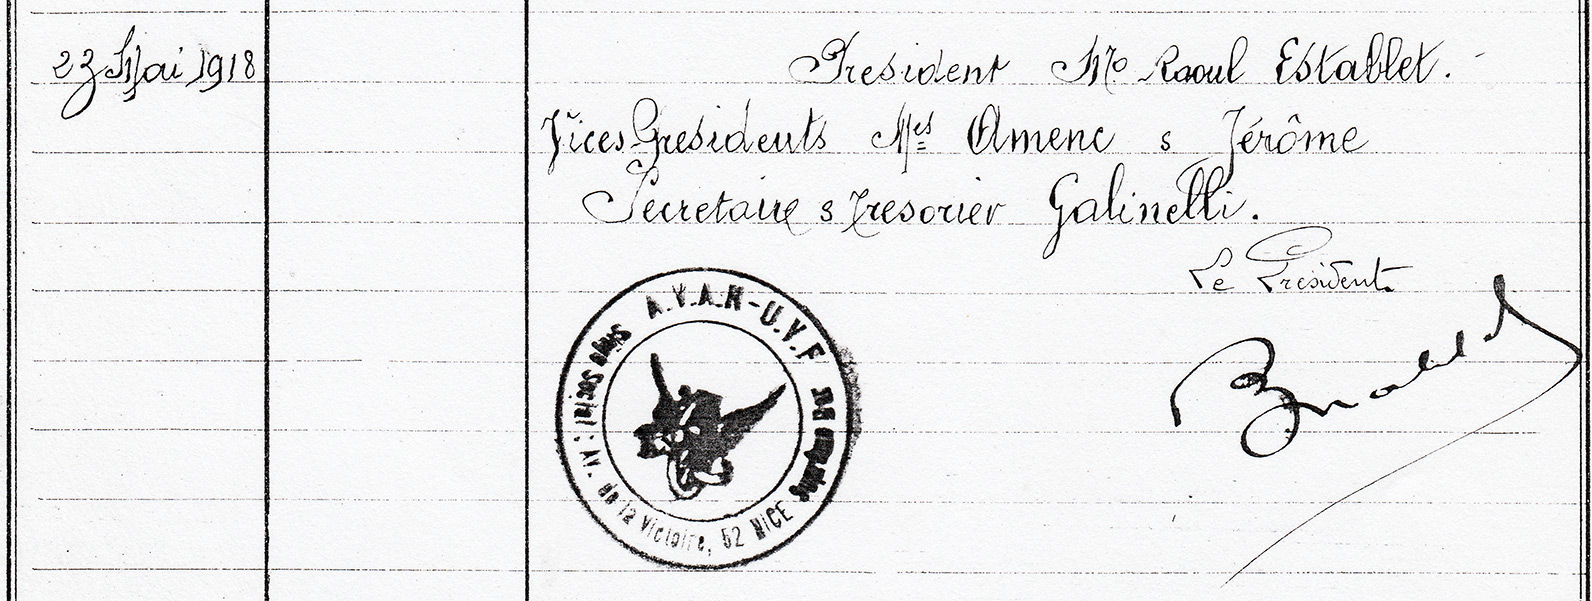 23 Mai 1918
President Mr Raoul Establet.
Vices Presidents Mes Amenc s Jérôme
Secretaire s Tresorier Galinelli.
Le President.
A.V.A.N - U.V.F
Siège Social: Av. de la Victoire, 52 NICE